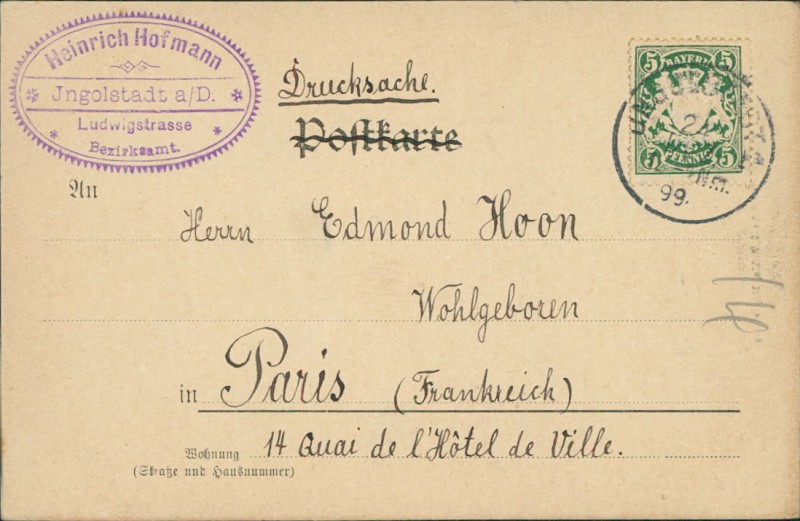 Heinrich Hofmann
Jngolstadt a/D.
Ludwigstrasse
Bezirksamt.
Drucksache.
Postkarte
5 BAYERN 5
5 PFENNIG 5
99.
An
Herrn Edmond Hoon
Wohlgeboren
in Paris (Frankreich)
Wohnung 14 Quai de l'Hôtel de Ville.
(Straße und Hausnummer)